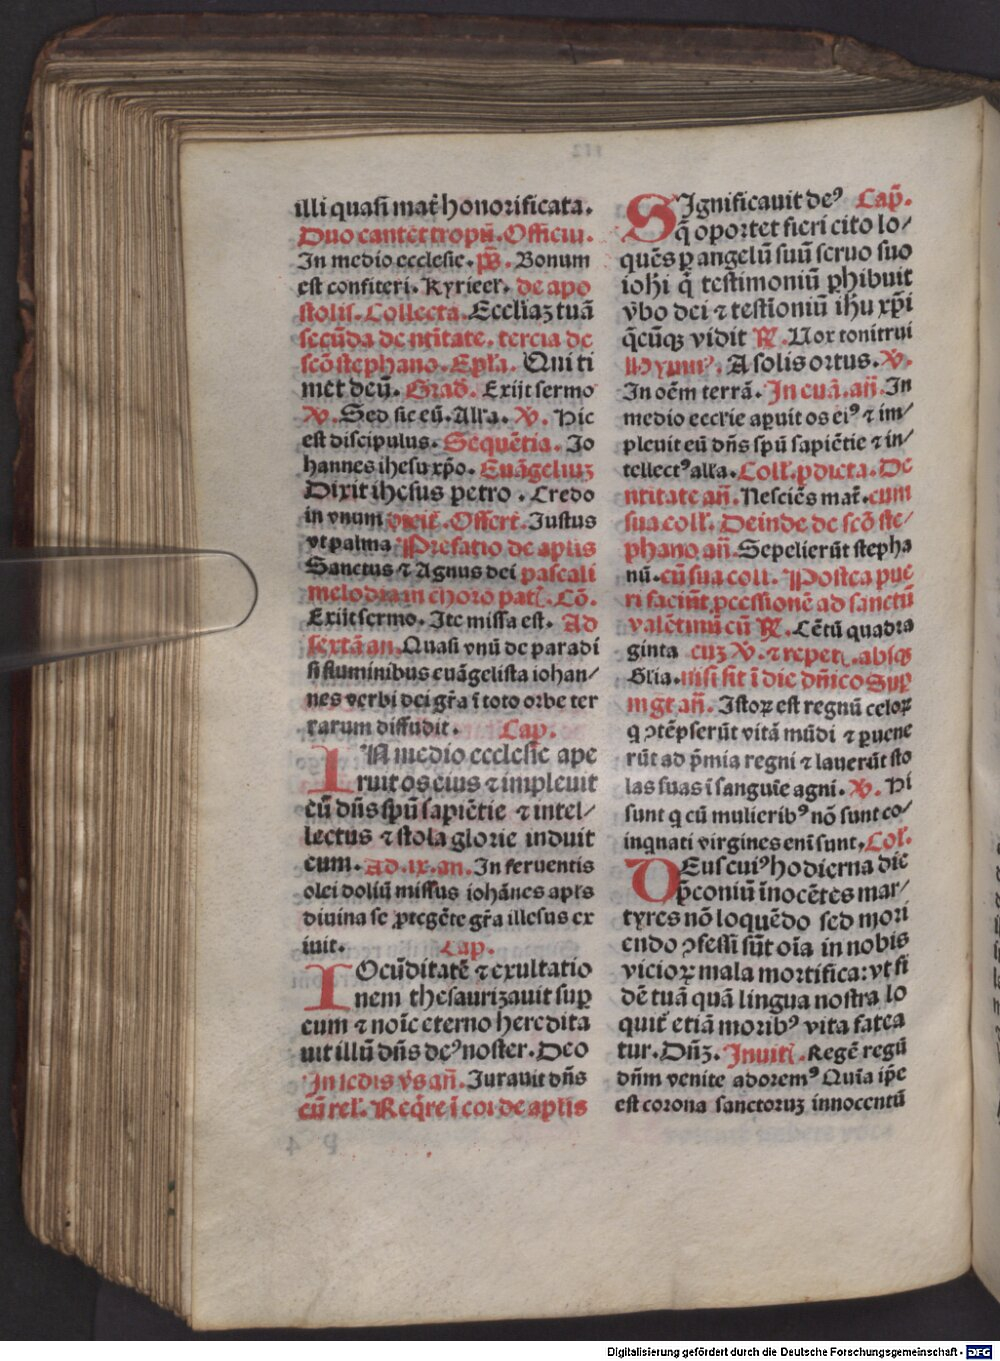 illi quasi mat̄ honorificata.
Duo cantēt tropū. Officiū.
In medio ecclesie. p̄s. Bonum
est confiteri. Kyrieel. de apo
stolis. Collecta. Eccliaȝ tuā
secūda de ntītate. tercia de
scō stephano. Epl̄a. Qui ti
met deū. Grad̄. Exijt sermo
V. Sed sic eū. Alla. V. Hic
est discipulus. Sequētia. Jo
hannes ihesu xp̄o. Euāgeliuȝ
Dixit ihesus petro. Credo
in vnum dicit̄. Offert̄. Justus
vt palma Prefatio de aplis
Sanctus ⁊ Agnus dei pascali
melodia in choro pat. Cō.
Exijt sermo. Ite missa est. Ad
sextā an. Quasi vnū de paradi
si fluminibus euāgelista iohan/
nes verbi dei gr̄a ī toto orbe ter
rarum diffudit. Cap.
IN medio ecclesie ape
ruit os eius ⁊ impleuit
eū dn̄s spū sapiētie ⁊ intel/
lectus ⁊ stola glorie induit
eum. Ad .ix. an. In feruentis
olei doliū missus iohānes apl̄s
diuina se ꝓtegēte gr̄a illesus ex
iuit. Cap.
IOcūditatē ⁊ exultatio
nem thesaurizauit suꝑ
eum ⁊ noīe eterno heredita
uit illū dn̄s deꝰ noster. Deo
In ıēdis v̄s an̄. Jurauit dn̄s
cū rel̄. Req̄re ī cōi de aplis
SIgnificauit deꝰ Cap̄.
q̄ oportet fieri cito lo/
quēs ꝑ angelū suū seruo suo
iohi q̄ testimoniū ꝑhibuit
v̄bo dei ⁊ testīoniū ihū xp̄i
q̄cūqȝ vidit R̄. Uox tonitrui
Hymnꝰ. A solis ortus. V.
In oēm terrā. In euā. an̄. In
medio ecclie aꝑuit os eiꝰ ⁊ im/
pleuit eū dn̄s spū sapiētie ⁊ in/
tellectꝰ alla. Coll̄. p̄dicta. De
ntītate an̄. Nesciēs mat̄. cum
sua coll̄. Deinde de scō ste/
phano an̄. Sepelierūt stepha
nū. cū sua coll. Postea pue
ri faciūt ꝓcessionē ad sanctū
valētinū cū R̄. Cētū quadra
ginta cuȝ V. ⁊ repet. absqȝ
Glia. nisi sit ī die dn̄ico Suꝑ
mgt an̄. Istoꝝ est regnū celoꝝ
q ꝯtēpserūt vitā mūdi ⁊ ꝑuene
rūt ad p̄mia regni ⁊ lauerūt sto
las suas ī sanguīe agni. V. Hi
sunt q cū mulieribꝰ nō sunt co/
inqnati virgines enī sunt, Col̄.
DEus cuiꝰ hodierna die
p̄coniū īnocētes mar/
tyres nō loquēdo sed mori
endo ꝯfessi sūt oīa in nobis
vicioꝝ mala mortifica: vt fi
dē tuā quā lingua nostra lo
quit̄ etiā moribꝰ vita fatea
tur. Dn̄ȝ. Inuit. Regē regū
dn̄m venite adoremꝰ Quīa ip̄e
est corona sanctoruȝ innocentū
Digitalisierung gefördert durch die Deutsche Forschungsgemeinschaft - DFG